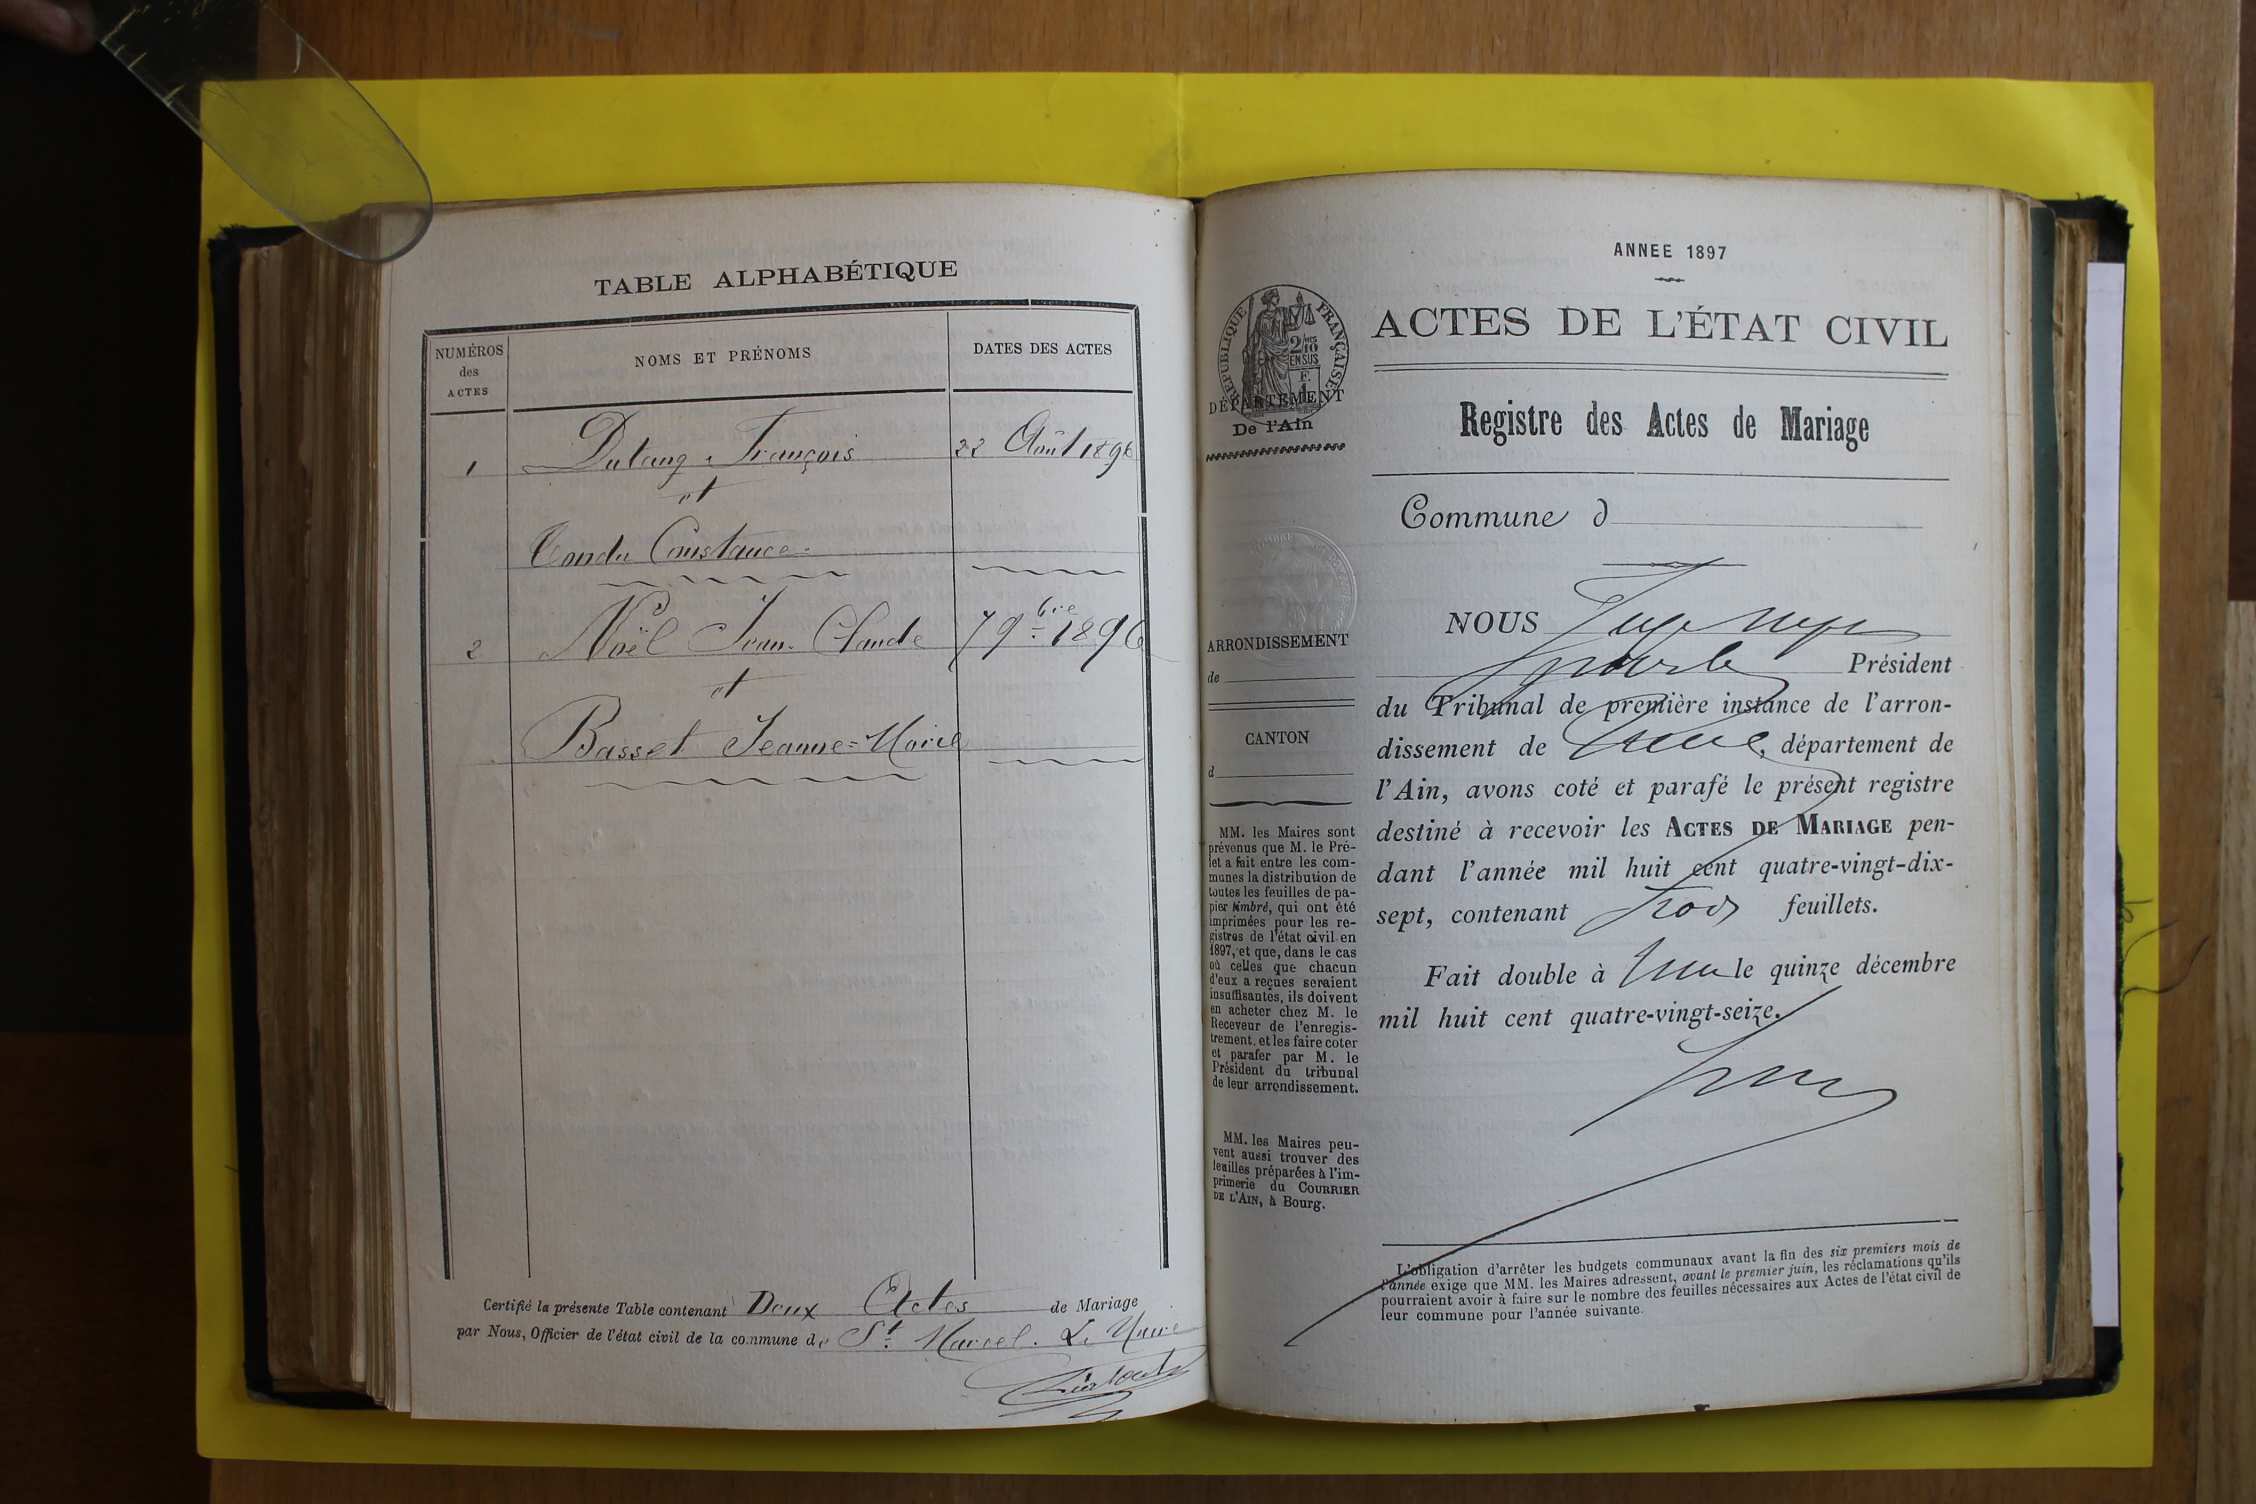 TABLE ALPHABÉTIQUE
NUMÉROS
des
ACTES
NOMS ET PRÉNOMS
DATES DES ACTES
1 Dutang François 22 Août 1896
et
Condu Constance.
2 Noël Jean-Claude 7 9bre 1896
et
Basset Jeanne=Marie
Certifié la présente Table contenant Deux Actes de Mariage
par Nous, Officier de l'état civil de la commune de St Marcel. Le Maire
ANNEE 1897
ACTES DE L'ÉTAT CIVIL
RÉPUBLIQUE FRANÇAISE
2/10 EN SUS
DÉPARTEMENT
De l'Ain
Registre des Actes de Mariage
Commune d
ARRONDISSEMENT
de
CANTON
d
MM. les Maires sont
prévenus que M. le Pré-
fet a fait entre les com-
munes la distribution de
toutes les feuilles de pa-
pier timbré, qui ont été
imprimées pour les re-
gistres de l'état civil en
1897, et que, dans le cas
où celles que chacun
d'eux a reçues seraient
insuffisantes, ils doivent
en acheter chez M. le
Receveur de l'enregis-
trement, et les faire coter
et parafer par M. le
Président du tribunal
de leur arrondissement.
MM. les Maires peu-
vent aussi trouver des
feuilles préparées à l'im-
primerie du COURRIER
DE L'AIN, à Bourg.
NOUS
Président
du Tribunal de première instance de l'arron-
dissement de , département de
l'Ain, avons coté et parafé le présent registre
destiné à recevoir les ACTES DE MARIAGE pen-
dant l'année mil huit cent quatre-vingt-dix-
sept, contenant Trois feuillets.
Fait double à le quinze décembre
mil huit cent quatre-vingt-seize.
L'obligation d'arrêter les budgets communaux avant la fin des six premiers mois de
l'année exige que MM. les Maires adressent, avant le premier juin, les réclamations qu'ils
pourraient avoir à faire sur le nombre des feuilles nécessaires aux Actes de l'état civil de
leur commune pour l'année suivante.